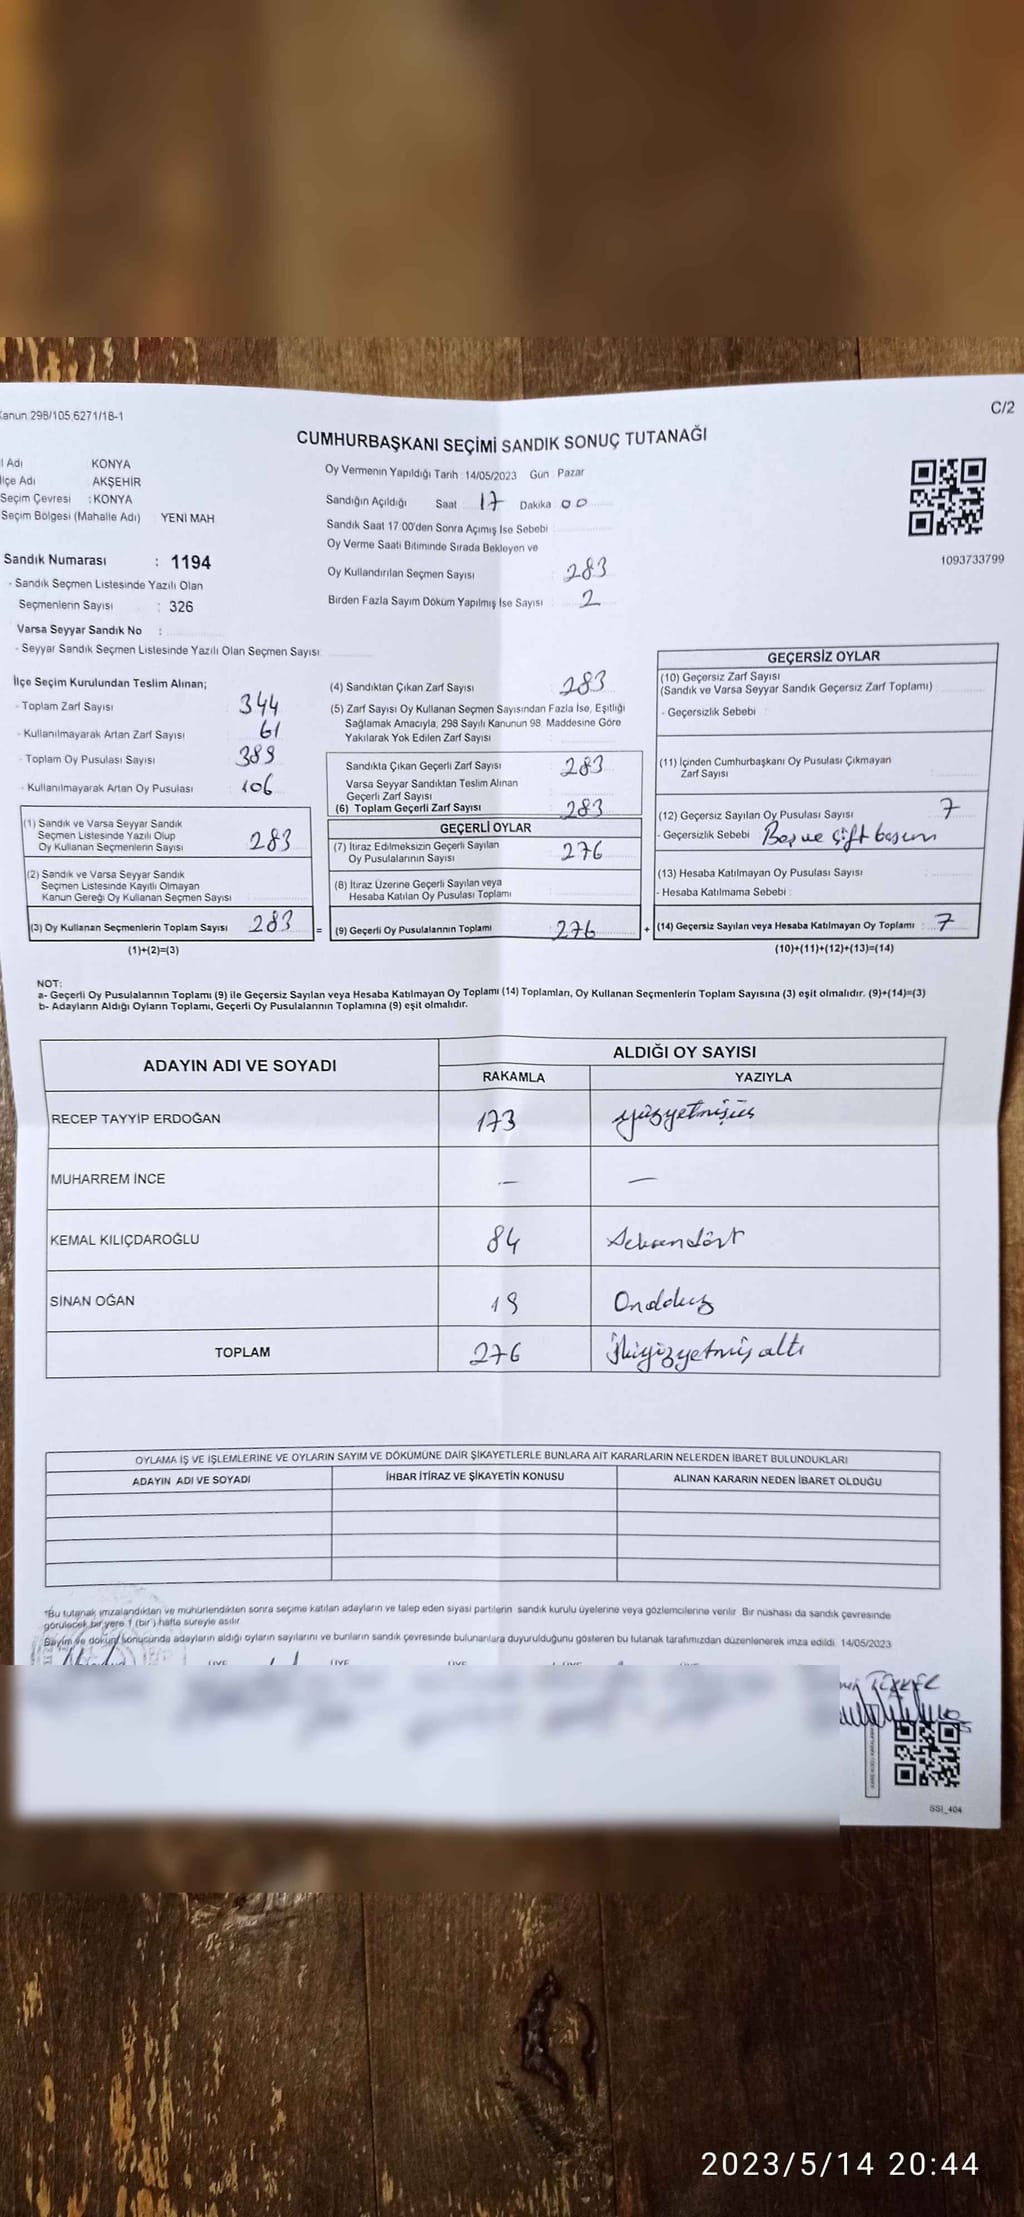 Kanun 298/105,6271/18-1
C/2
CUMHURBAŞKANI SEÇİMİ SANDIK SONUÇ TUTANAĞI
l Adı KONYA
İlçe Adı AKŞEHİR
Seçim Çevresi : KONYA
Seçim Bölgesi (Mahalle Adı) YENİ MAH
Sandık Numarası : 1194
- Sandık Seçmen Listesinde Yazılı Olan
Seçmenlerin Sayısı : 326
Varsa Seyyar Sandık No :
- Seyyar Sandık Seçmen Listesinde Yazılı Olan Seçmen Sayısı
Oy Vermenin Yapıldığı Tarih 14/05/2023 Gün : Pazar
Sandığın Açıldığı Saat 17 Dakika 00
Sandık Saat 17:00'den Sonra Açımış İse Sebebi
Oy Verme Saati Bitiminde Sırada Bekleyen ve
Oy Kullandırılan Seçmen Sayısı : 283
Birden Fazla Sayım Döküm Yapılmış İse Sayısı : 2
1093733799
İlçe Seçim Kurulundan Teslim Alınan;
- Toplam Zarf Sayısı 344
- Kullanılmayarak Artan Zarf Sayısı 61
- Toplam Oy Pusulası Sayısı 389
- Kullanılmayarak Artan Oy Pusulası 106
(1) Sandık ve Varsa Seyyar Sandık
Seçmen Listesinde Yazılı Olup
Oy Kullanan Seçmenlerin Sayısı 283
(2) Sandık ve Varsa Seyyar Sandık
Seçmen Listesinde Kayıtlı Olmayan
Kanun Gereği Oy Kullanan Seçmen Sayısı
(3) Oy Kullanan Seçmenlerin Toplam Sayısı 283 =
(1)+(2)=(3)
(4) Sandıktan Çıkan Zarf Sayısı 283
(5) Zarf Sayısı Oy Kullanan Seçmen Sayısından Fazla İse, Eşitliği
Sağlamak Amacıyla, 298 Sayılı Kanunun 98. Maddesine Göre
Yakılarak Yok Edilen Zarf Sayısı
Sandıkta Çıkan Geçerli Zarf Sayısı 283
Varsa Seyyar Sandıktan Teslim Alınan
Geçerli Zarf Sayısı
(6) Toplam Geçerli Zarf Sayısı 283
GEÇERLİ OYLAR
(7) İtiraz Edilmeksizin Geçerli Sayılan
Oy Pusulalarının Sayısı 276
(8) İtiraz Üzerine Geçerli Sayılan veya
Hesaba Katılan Oy Pusulası Toplamı
(9) Geçerli Oy Pusulalarının Toplamı 276 +
GEÇERSİZ OYLAR
(10) Geçersiz Zarf Sayısı
(Sandık ve Varsa Seyyar Sandık Geçersiz Zarf Toplamı)
- Geçersizlik Sebebi :
(11) İçinden Cumhurbaşkanı Oy Pusulası Çıkmayan
Zarf Sayısı
(12) Geçersiz Sayılan Oy Pusulası Sayısı 7
- Geçersizlik Sebebi Boş ve çift basım
(13) Hesaba Katılmayan Oy Pusulası Sayısı
- Hesaba Katılmama Sebebi :
(14) Geçersiz Sayılan veya Hesaba Katılmayan Oy Toplamı : 7
(10)+(11)+(12)+(13)=(14)
NOT:
a- Geçerli Oy Pusulalarının Toplamı (9) ile Geçersiz Sayılan veya Hesaba Katılmayan Oy Toplamı (14) Toplamları, Oy Kullanan Seçmenlerin Toplam Sayısına (3) eşit olmalıdır. (9)+(14)=(3)
b- Adayların Aldığı Oyların Toplamı, Geçerli Oy Pusulalarının Toplamına (9) eşit olmalıdır.
ADAYIN ADI VE SOYADI
ALDIĞI OY SAYISI
RAKAMLA YAZIYLA
RECEP TAYYİP ERDOĞAN 173 yüzyetmişüç
MUHARREM İNCE — —
KEMAL KILIÇDAROĞLU 84 Seksendört
SİNAN OĞAN 19 Ondokuz
TOPLAM 276 İkiyüzyetmiş altı
OYLAMA İŞ VE İŞLEMLERİNE VE OYLARIN SAYIM VE DÖKÜMÜNE DAİR ŞİKAYETLERLE BUNLARA AİT KARARLARIN NELERDEN İBARET BULUNDUKLARI
ADAYIN ADI VE SOYADI İHBAR İTİRAZ VE ŞİKAYETİN KONUSU ALINAN KARARIN NEDEN İBARET OLDUĞU
*Bu tutanak imzalandıktan ve mühürlendikten sonra seçime katılan adayların ve talep eden siyasi partilerin sandık kurulu üyelerine veya gözlemcilerine verilir. Bir nüshası da sandık çevresinde
görülecek bir yere 1 (bir) hafta süreyle asılır.
Sayım ve döküm sonucunda adayların aldığı oyların sayılarını ve bunların sandık çevresinde bulunanlara duyurulduğunu gösteren bu tutanak tarafımızdan düzenlenerek imza edildi. 14/05/2023
ÜYE ÜYE ÜYE ÜYE ÜYE
SSI_404
2023/5/14 20:44